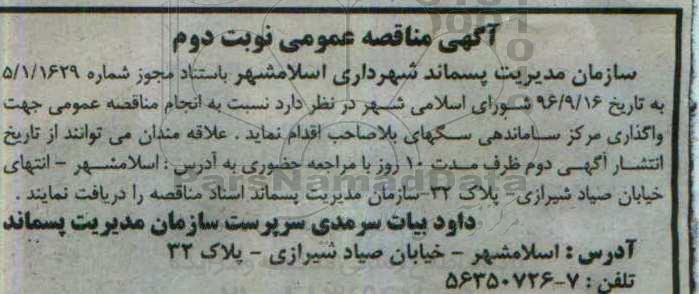 آگهی مناقصه عمومی نوبت دوم
سازمان مدیریت پسماند شهرداری اسلامشهر باستناد مجوز شماره ۵/۱/۱۶۲۹
به تاریخ ۹۶/۹/۱۶ شورای اسلامی شهر در نظر دارد نسبت به انجام مناقصه عمومی جهت
واگذاری مرکز ساماندهی سگهای بلاصاحب اقدام نماید . علاقه مندان می توانند از تاریخ
انتشار آگهی دوم ظرف مدت ۱۰ روز با مراجعه حضوری به آدرس : اسلامشهر - انتهای
خیابان صیاد شیرازی- پلاک ۳۲-سازمان مدیریت پسماند اسناد مناقصه را دریافت نمایند .
داود بیات سرمدی سرپرست سازمان مدیریت پسماند
آدرس : اسلامشهر - خیابان صیاد شیرازی - پلاک ۳۲
تلفن : ۷-۵۶۳۵۰۷۲۶
ParsNamadData